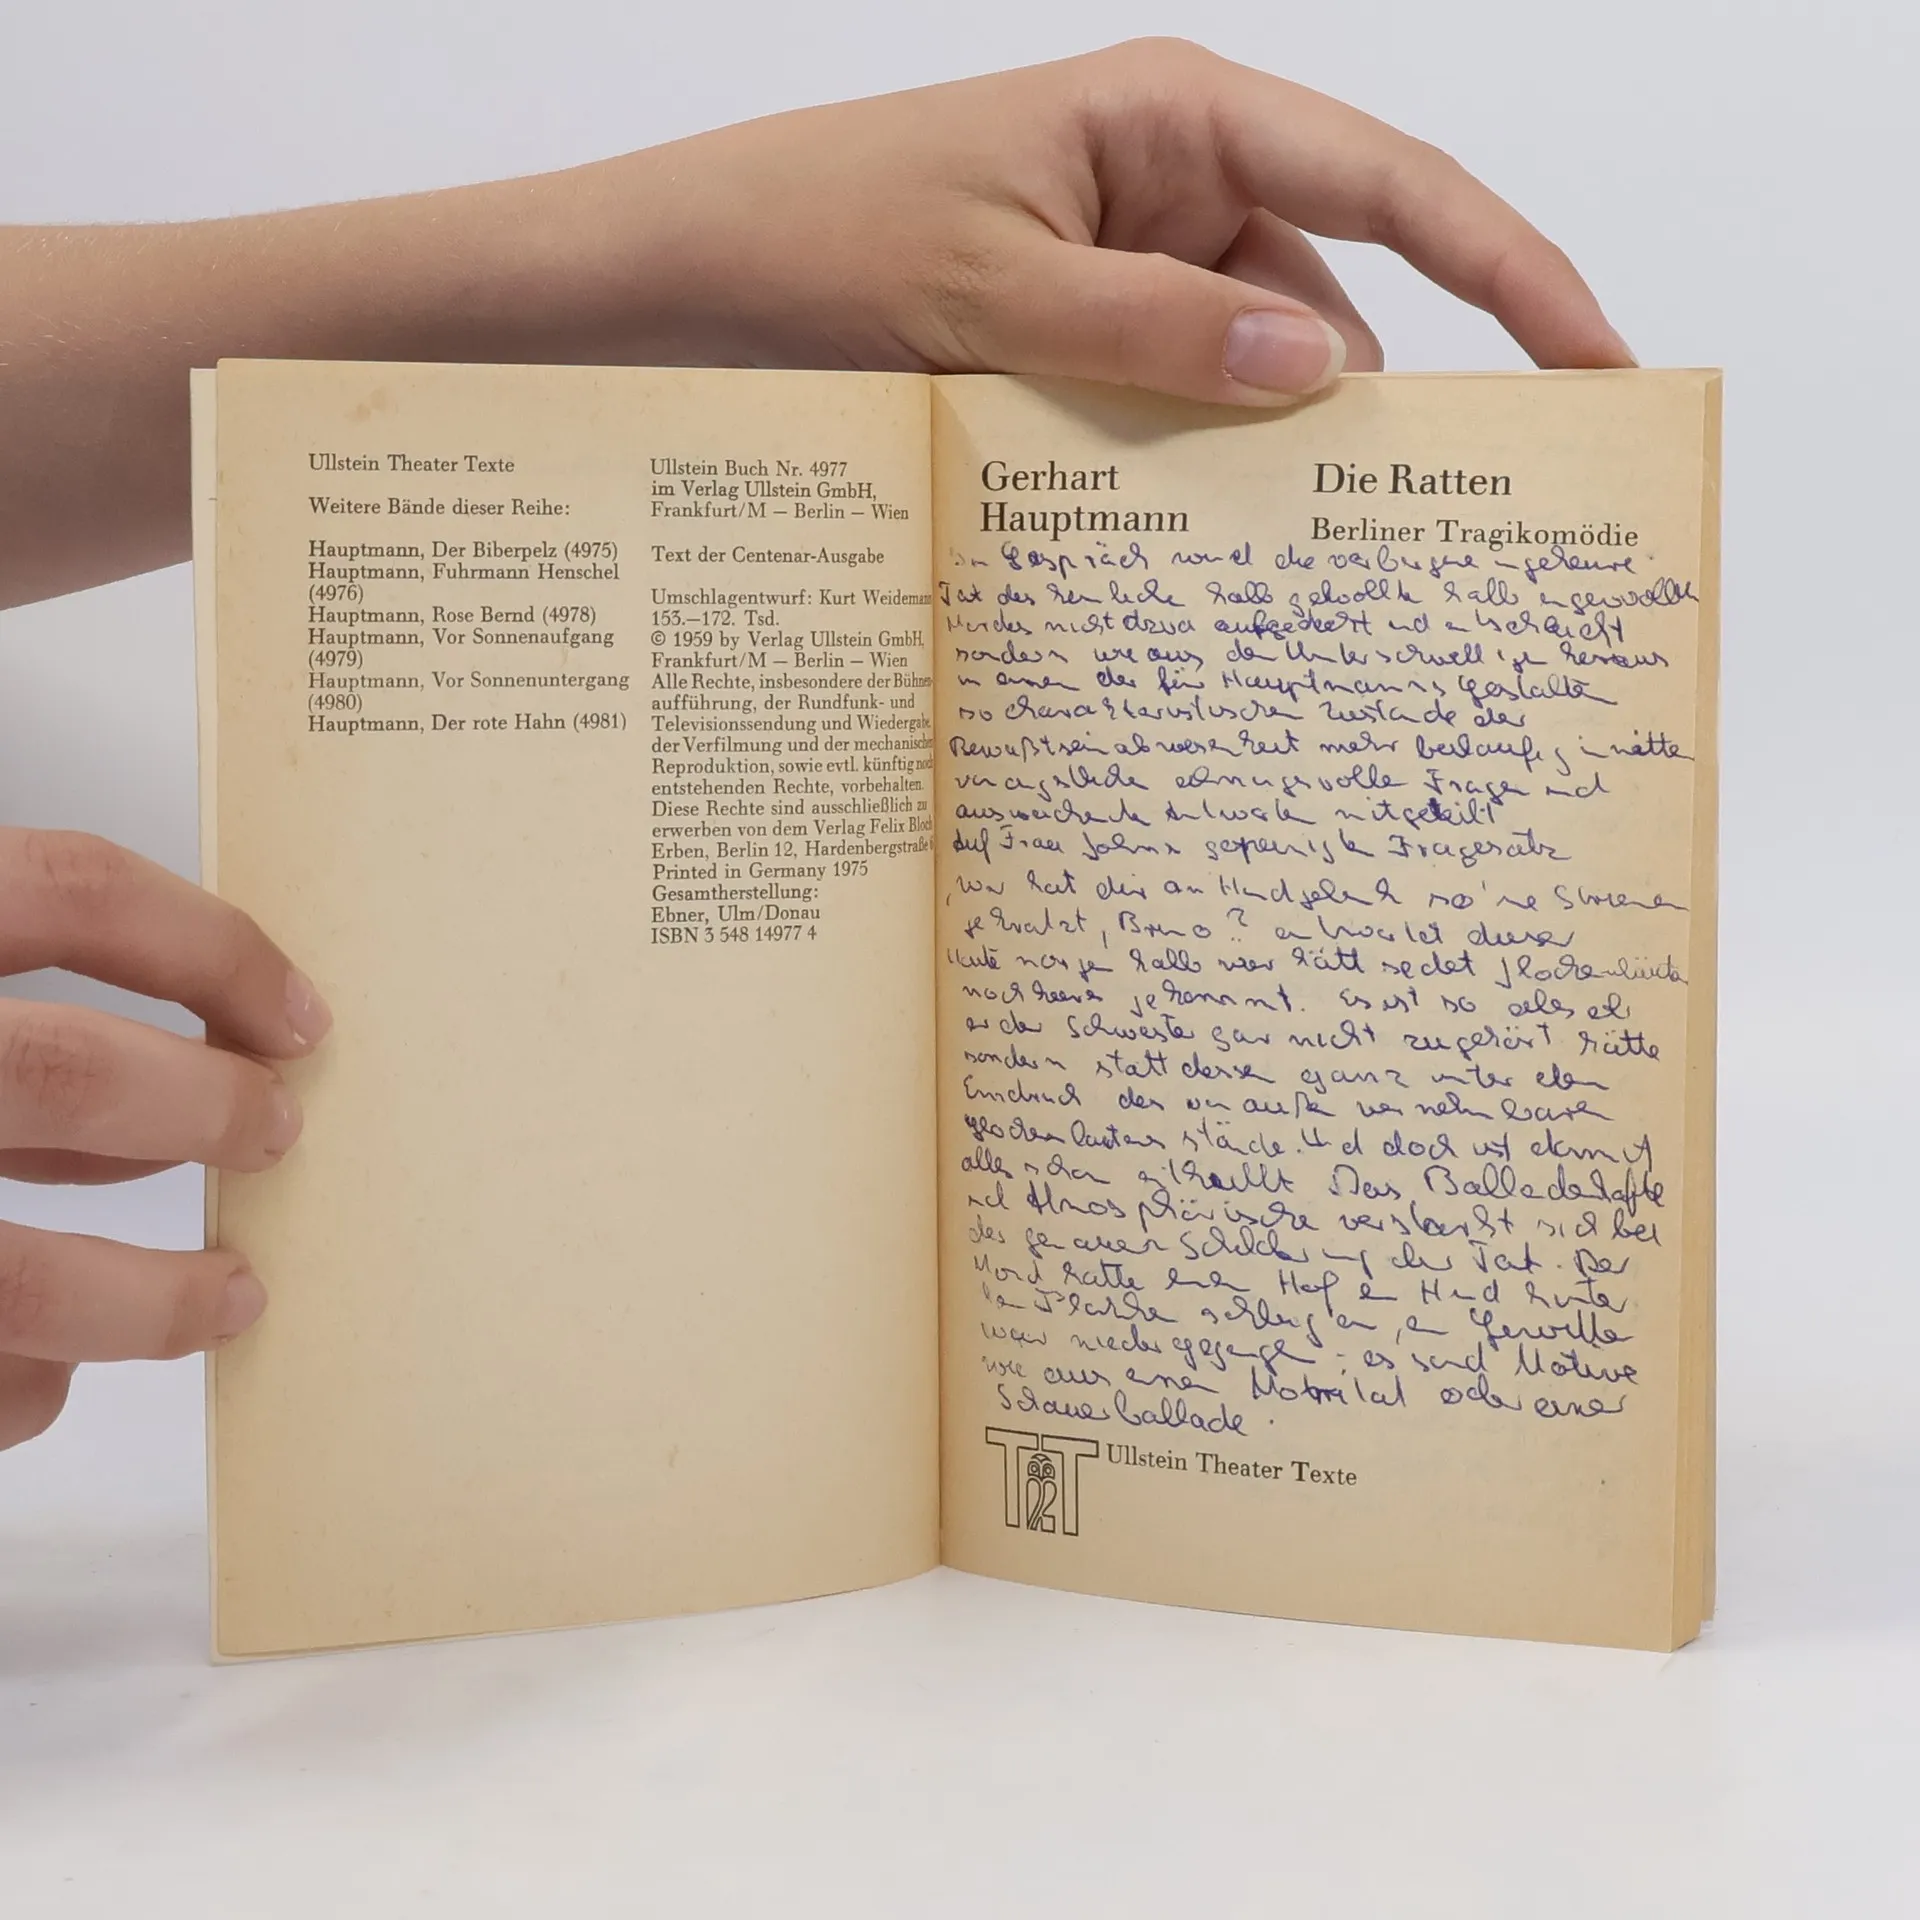 Ullstein Theater Texte
Weitere Bände dieser Reihe:
Hauptmann, Der Biberpelz (4975)
Hauptmann, Fuhrmann Henschel
(4976)
Hauptmann, Rose Bernd (4978)
Hauptmann, Vor Sonnenaufgang
(4979)
Hauptmann, Vor Sonnenuntergang
(4980)
Hauptmann, Der rote Hahn (4981)
Ullstein Buch Nr. 4977
im Verlag Ullstein GmbH,
Frankfurt/M – Berlin – Wien
Text der Centenar-Ausgabe
Umschlagentwurf: Kurt Weidemann
153.–172. Tsd.
© 1959 by Verlag Ullstein GmbH,
Frankfurt/M – Berlin – Wien
Alle Rechte, insbesondere der Bühnen-
aufführung, der Rundfunk- und
Televisionssendung und Wiedergabe,
der Verfilmung und der mechanischen
Reproduktion, sowie evtl. künftig noch
entstehenden Rechte, vorbehalten.
Diese Rechte sind ausschließlich zu
erwerben von dem Verlag Felix Bloch
Erben, Berlin 12, Hardenbergstraße 6
Printed in Germany 1975
Gesamtherstellung:
Ebner, Ulm/Donau
ISBN 3 548 14977 4
Gerhart
Hauptmann
Die Ratten
Berliner Tragikomödie
Im Gespräch wird die verborgene ungeheure
Tat des heimlichen halb gewollten halb ungewollten
Mordes nicht etwa aufgedeckt und
sondern wie aus dem Unterschwelligen heraus
in einem der für Hauptmanns Gestalten
so charakteristischen Zustände der
Bewußtseinsabwesenheit mehr beiläufig inmitten
von ängstliche ahnungsvolle Fragen und
ausweichende Antworten mitgeteilt
Auf Frau Johns gepeinigten Fragesatz
„Wer hat dir am Handgelenk so'ne Striemen
gekratzt, Bruno? antwortet dieser
Heute morgen halb vier hätt se det Jlockenläuten
noch heeren jekonnt. Es ist so als ob
er der Schwester gar nicht zugehört hätte
sondern statt dessen ganz unter dem
Eindruck des von außen vernehmbaren
Glockenläutens stände. Und doch ist damit
alles schon enthüllt Das Balladenhafte
und Atmosphärische verstärkt sich bei
der genauen Schilderung der Tat. Der
Mond hatte einen Hof ein Hund hinter
den Planken schlug an, ein Gewitter
war niedergegangen; es sind Motive
wie aus einer Moritat oder einer
Schauerballade.
TT
Ullstein Theater Texte